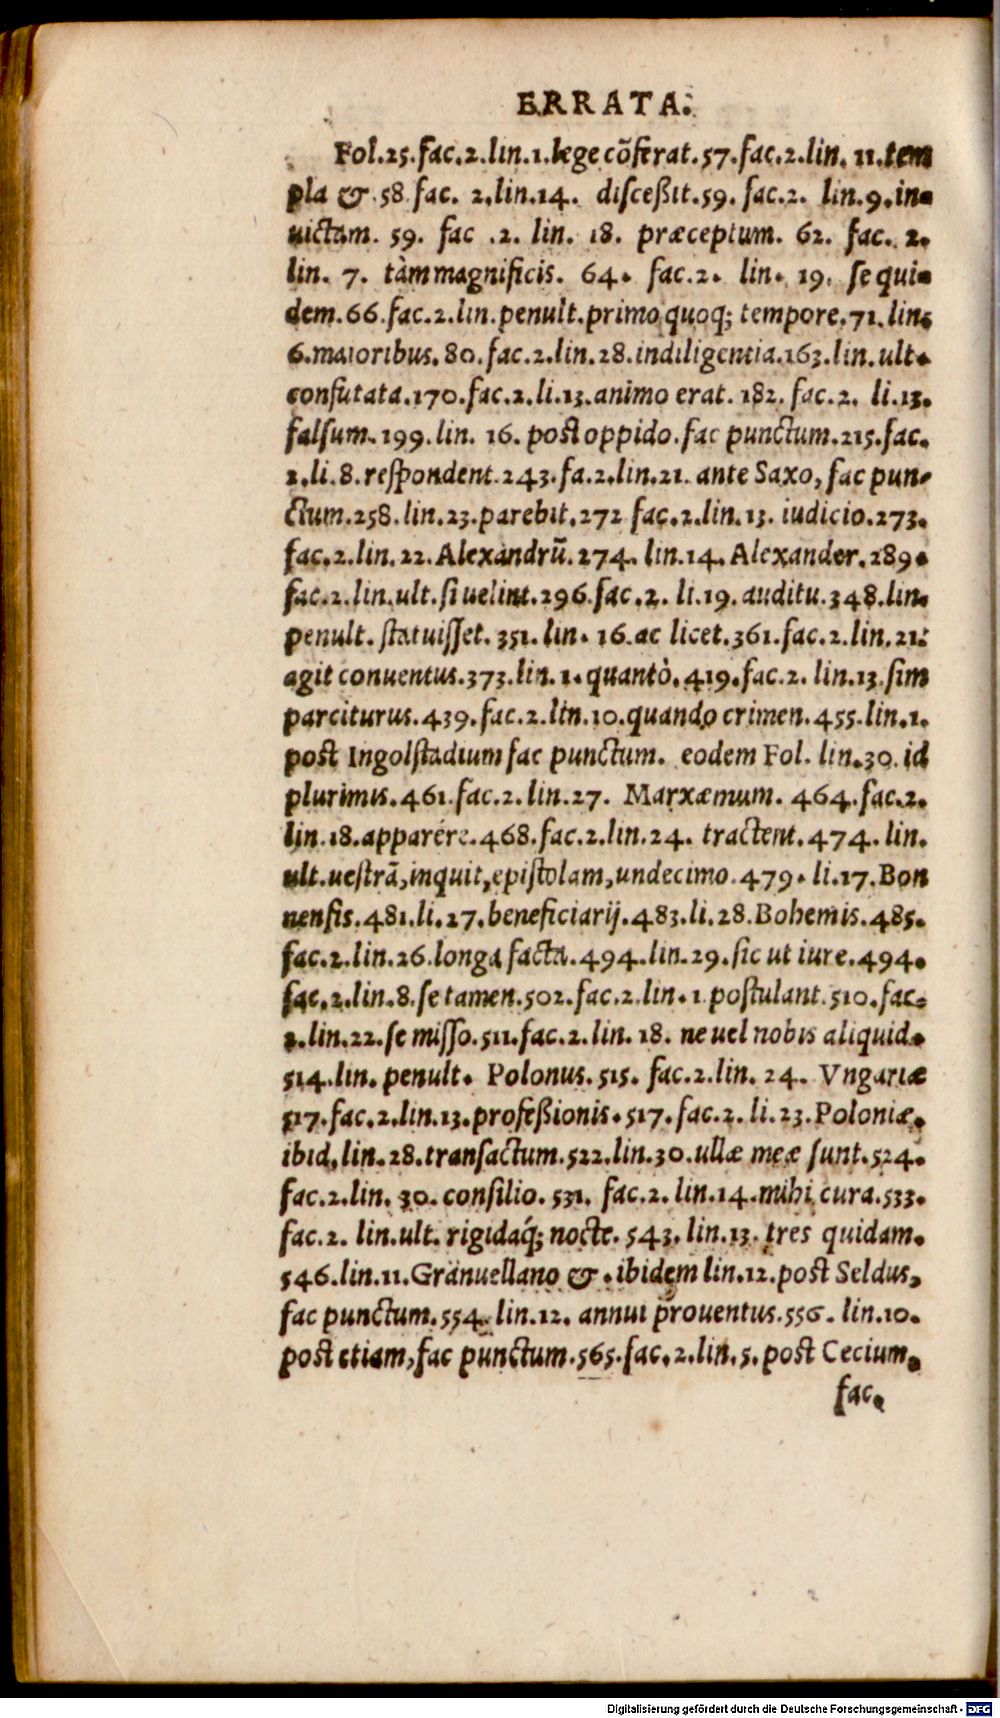 ERRATA.
Fol.25.fac.2.lin.1.lege cōferat.57.fac.2.lin. 11.tem
pla & .58.fac. 2.lin.14. disceßit.59. fac.2. lin.9.in-
uictam. 59. fac .2. lin. 18. præceptum. 62. fac. 2.
lin. 7. tàm magnificis. 64. fac.2. lin. 19. se qui-
dem.66.fac.2.lin.penult.primo quoq; tempore.71.lin.
6.maioribus.80.fac.2.lin.28.indiligentia.163.lin.ult.
confutata.170.fac.2.li.13.animo erat. 182. fac.2. li.13.
falsum.199.lin. 16. post oppido.fac punctum.215.fac.
2.li.8.respondent.243.fa.2.lin.21. ante Saxo, fac pun-
ctum.258.lin.23.parebit.272 fac.2.lin.13. iudicio.273.
fac.2.lin.22.Alexandrū.274. lin.14.Alexander.289.
fac.2.lin.ult.si uelint.296.fac.2. li.19.auditu.348.lin.
penult.statuisset. 351.lin. 16.ac licet.361.fac.2.lin.21.
agit conuentus.373.lin.1.quantò.419.fac.2. lin.13.sim
parciturus.439.fac.2.lin.10.quando crimen.455.lin.1.
post Ingolstadium fac punctum. eodem Fol. lin.30. id
plurimis.461.fac.2.lin.27. Marxæmum. 464.fac.2.
lin.18.apparére.468.fac.2.lin.24. tractent.474.lin.
ult.uestrā,inquit,epistolam,undecimo.479.li.17.Bon
nensis.481.li.27.beneficiarij.483.li.28.Bohemis.485.
fac.2.lin.26.longa facta.494.lin.29.sic ut iure.494.
fac.2.lin.8.se tamen.502.fac.2.lin.1.postulant.510.fac.
2.lin.22.se misso.511.fac.2.lin. 18. ne uel nobis aliquid.
514.lin. penult. Polonus.515. fac.2.lin. 24. Vngariæ
517.fac.2.lin.13.profeßionis.517.fac.2.li.23.Poloniæ.
ibid,lin.28.transactum.522.lin.30.ullæ meæ sunt.524.
fac.2.lin. 30. consilio. 531. fac.2. lin.14.mihi cura.533.
fac.2. lin.ult. rigidaq́; nocte. 543. lin.13. tres quidam.
546.lin.11.Granuellano & .ibidem lin.12.post Seldus,
fac punctum.554. lin.12. annui prouentus.556. lin.10.
post etiam,fac punctum.565.fac.2.lin.5.post Cecium,
fac.
Digitalisierung gefördert durch die Deutsche Forschungsgemeinschaft - DFG